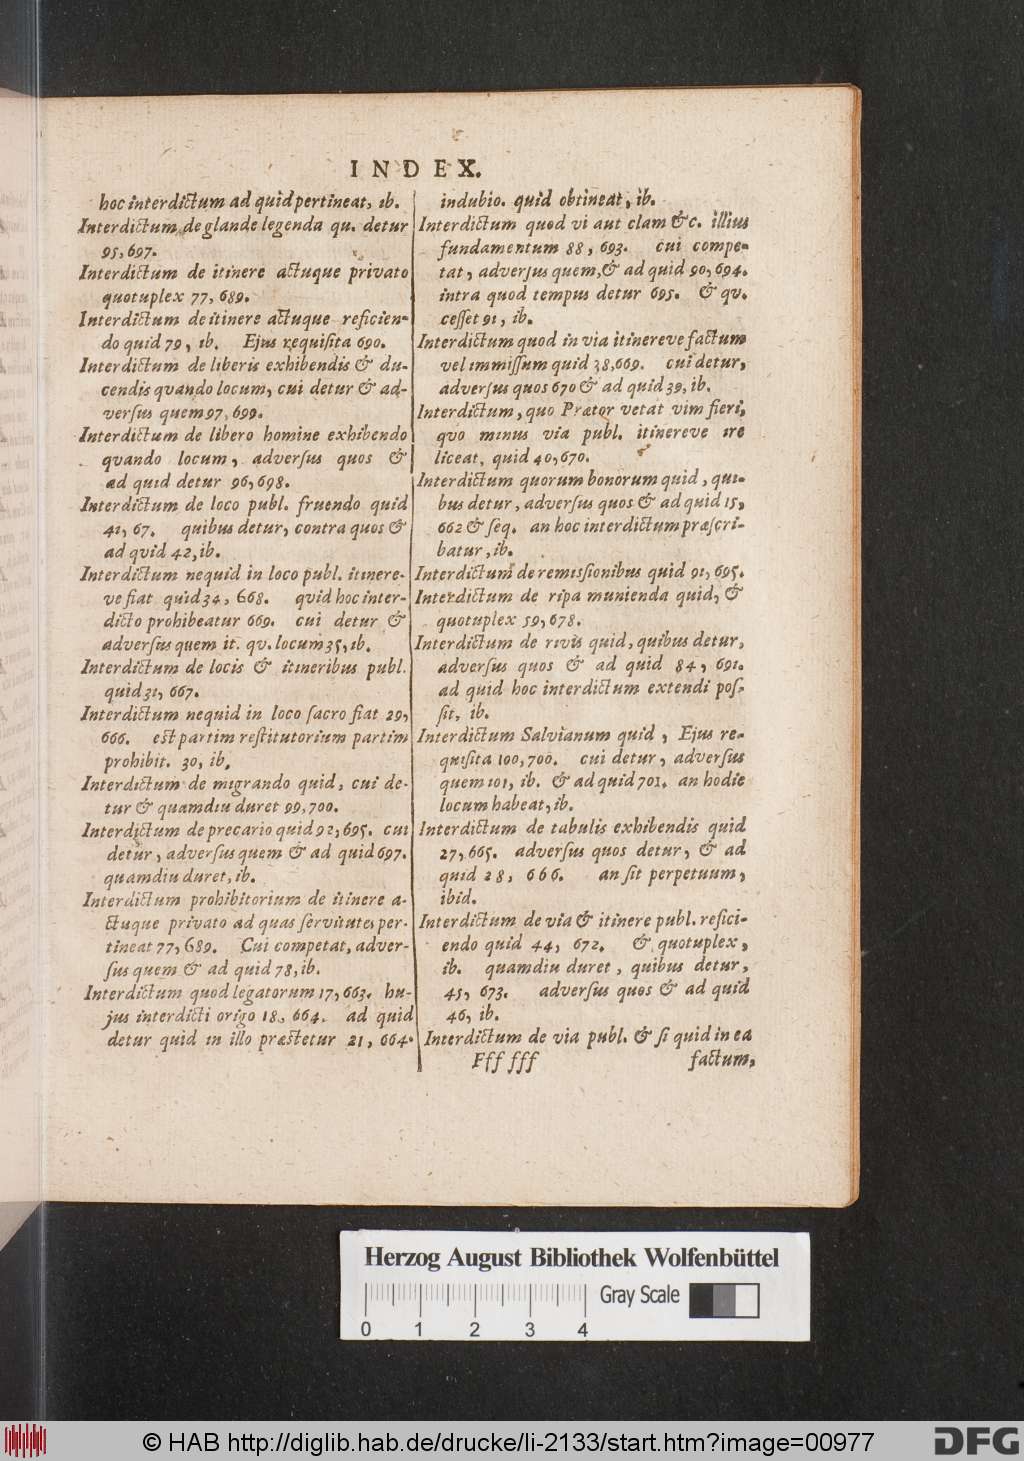 INDEX.
hoc interdictum ad quid pertineat, ib.
Interdictum de glande legenda qu. detur
95, 697.
Interdictum de itinere actuque privato
quotuplex 77, 689.
Interdictum de itinere actuque reficien-
do quid 79, ib. Ejus requisita 690.
Interdictum de liberis exhibendis & du-
cendis qvando locum, cui detur & ad-
versus quem 97, 699.
Interdictum de libero homine exhibendo
qvando locum, adversus quos &
ad quid detur 96, 698.
Interdictum de loco publ. fruendo quid
41, 67. quibus detur, contra quos &
ad qvid 42, ib.
Interdictum nequid in loco publ. itinere-
ve fiat quid 34, 668. qvid hoc inter-
dicto prohibeatur 669. cui detur &
adversus quem it. qv. locum 35, ib.
Interdictum de locis & itineribus publ.
quid 31, 667.
Interdictum nequid in loco sacro fiat 29,
666. est partim restitutorium partim
prohibit. 30, ib.
Interdictum de migrando quid, cui de-
tur & quamdiu duret 99, 700.
Interdictum de precario quid 92, 695. cui
detur, adversus quem & ad quid 697.
quamdiu duret, ib.
Interdictum prohibitorium de itinere a-
ctuque privato ad quas servitutes per-
tineat 77, 689. Cui competat, adver-
sus quem & ad quid 78, ib.
Interdictum quod legatorum 17, 663. hu-
jus interdicti origo 18, 664. ad quid
detur quid in illo præstetur 21, 664.
indubio. quid obtineat, ib.
Interdictum quod vi aut clam &c. illius
fundamentum 88, 693. cui compe-
tat, adversus quem, & ad quid 90, 694.
intra quod tempus detur 695. & qv.
cesset 91, ib.
Interdictum quod in via itinereve factum
vel immissum quid 38, 669. cui detur,
adversus quos 670 & ad quid 39, ib.
Interdictum, quo Prætor vetat vim fieri,
qvo minus via publ. itinereve ire
liceat, quid 40, 670.
Interdictum quorum bonorum quid, qui-
bus detur, adversus quos & ad quid 15,
662 & seq. an hoc interdictum præscri-
batur, ib.
Interdictum de remissionibus quid 91, 695.
Interdictum de ripa munienda quid, &
quotuplex 59, 678.
Interdictum de rivis quid, quibus detur,
adversus quos & ad quid 84, 691.
ad quid hoc interdictum extendi pos-
sit, ib.
Interdictum Salvianum quid, Ejus re-
quisita 100, 700. cui detur, adversus
quem 101, ib. & ad quid 701. an hodie
locum habeat, ib.
Interdictum de tabulis exhibendis quid
27, 665. adversus quos detur, & ad
quid 28, 666. an sit perpetuum,
ibid.
Interdictum de via & itinere publ. refici-
endo quid 44, 672. & quotuplex,
ib. quamdiu duret, quibus detur,
45, 673. adversus quos & ad quid
46, ib.
Interdictum de via publ. & si quid in ea
Fff fff factum,
Herzog August Bibliothek Wolfenbüttel
Gray Scale
0 1 2 3 4
© HAB http://diglib.hab.de/drucke/li-2133/start.htm?image=00977
DFG